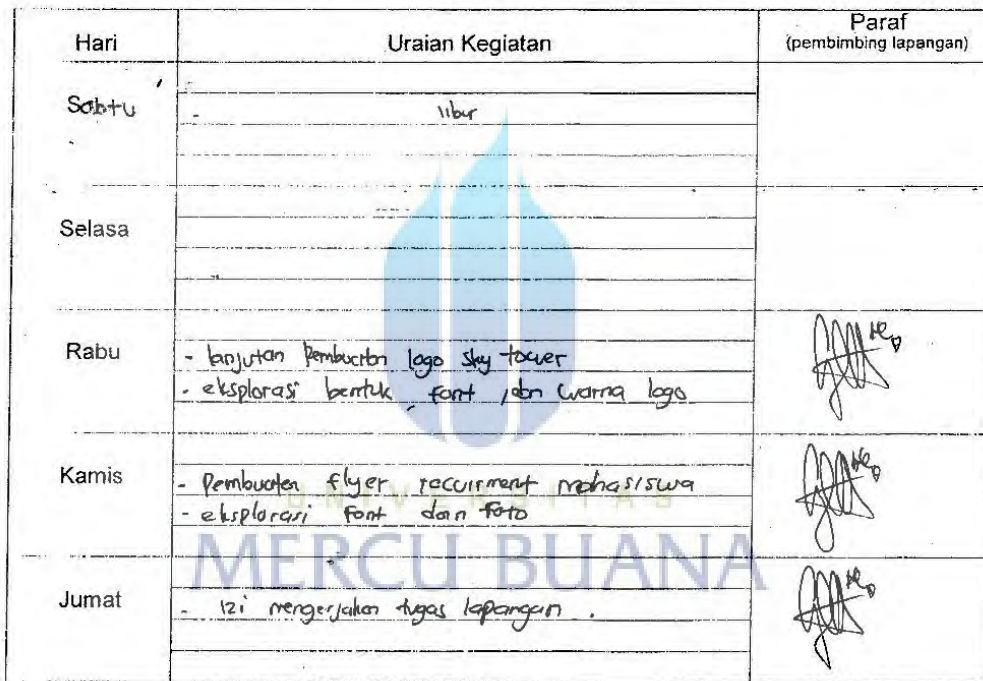 Hari Uraian Kegiatan Paraf
(pembimbing lapangan)
Sabtu - libur
Selasa
Rabu
- lanjutan Pembuatan logo sky tower
- eksplorasi bentuk, font, dan warna logo
Kamis
- Pembuatan flyer recuirment mahasiswa
- eksplorasi font dan foto
UNIVERSITAS
MERCU BUANA
Jumat
- izi mengerjakan tugas lapangan.